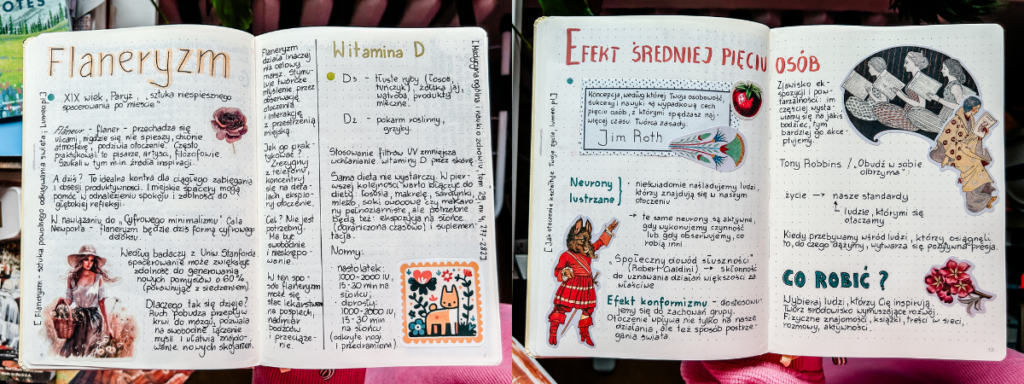 Flaneryzm
XIX wiek, Paryż, „sztuka niespiesznego
spacerowania po mieście”
Flâneur - Flaner - przechadza się
ulicami, nigdzie się nie spieszy, chłonie
atmosferę, podziwia otoczenie. Często
praktykowali to pisarze, artyści, filozofowie.
Szukali w tym m.in. źródła inspiracji.
A dziś? To idealna kontra dla ciągłego zabiegania
i obsesji produktywności. I miejskie spacery mogą
pomóc w odnalezieniu spokoju i zdolności do
głębokiej refleksji.
W nawiązaniu do „Cyfrowego minimalizmu” Cala
Newporta - flaneryzm będzie dziś formą cyfrowego
detoksu.
Według badaczy z Uniw. Stanforda
spacerowanie może zwiększać
zdolność do generowania
nowych pomysłów o 60%
(porównując z siedzeniem).
Dlaczego tak się dzieje?
Ruch pobudza przepływ
krwi do mózgu, pozwala
na swobodne łączenie
myśli i ułatwia znajdo-
wanie nowych skojarzeń.
[Flaneryzm - sztuka powolnego odkrywania świata; Lumen.pl]
Flaneryzm
działa inaczej
niż celowy
marsz. Stymu-
luje twórcze
myślenie przez
obserwację
otoczenia
i interakcję
z przestrzenią
miejską.
Jak go prak-
tykować?
Zrezygnuj
z telefonów,
koncentruj
się na deta-
lach, eksplo-
ruj otoczenie.
Cel? Nie jest
potrzebny.
Ma być
swobodnie
i nieskrępo-
wanie.
W ten spo-
sób flaneryzm
może się
stać lekarstwem
na pośpiech,
nadmiar
bodźców
i przeciąże-
nie.
Witamina D
D3 - tłuste ryby (łosoś,
tuńczyk), żółtka jaj,
wątroba, produkty
mleczne.
D2 - pokarm roślinny,
grzyby.
Stosowanie filtrów UV zmniejsza
wchłanianie witaminy D przez skórę.
Sama dieta nie wystarczy. W pier-
wszej kolejności warto włączyć do
diety: łososia, makrelę, sardynki,
mięso, soki owocowe czy makaro-
ny pełnoziarniste, ale potrzebne
będą też: ekspozycja na słońce
(ograniczona czasowo) i suplemen-
tacja.
Normy:
nastolatek:
1000-2000 IU,
15-30 min na
słońcu,
dorosły:
1000-2000 IU,
15-30 min
na słońcu
(odkryte nogi
i przedramiona)
EFEKT ŚREDNIEJ PIĘCIU OSÓB
Koncepcja, według której Twoja osobowość,
sukcesy i nawyki są wypadkową cech
pięciu osób, z którymi spędzasz naj-
więcej czasu. Twórca zasady:
Jim Roth
[Jak otoczenie kształtuje Twoje życie, Lumen.pl]
Neurony
lustrzane
nieświadomie naśladujemy ludzi,
którzy znajdują się w naszym
otoczeniu
→ te same neurony są aktywne,
gdy wykonujemy czynność
lub gdy obserwujemy, co
robią inni
„Społeczny dowód słuszności”
(Robert Cialdini) → skłonność
do uznawania działań większości za
właściwe
Efekt konformizmu - dostosowu-
jemy się do zachowań grupy.
Otoczenie wpływa nie tylko na nasze
działania, ale też sposób postrze-
gania świata.
Zjawisko ek-
spozycji i po-
wtarzalności: im
częściej wysta-
wiamy się na jakiś
bodziec, tym
bardziej go akce-
ptujemy.
Tony Robbins / „Obudź w sobie
olbrzyma”
życie → nasze standardy
ludzie, którymi się
otaczamy
Kiedy przebywamy wśród ludzi, którzy osiągnęli
to, do czego dążymy, wytwarza się pozytywna presja.
CO ROBIĆ?
Wybieraj ludzi, którzy Cię inspirują.
Twórz środowisko wymuszające rozwój.
Fizyczne znajomości, książki, treści w sieci,
rozmowy, aktywności.